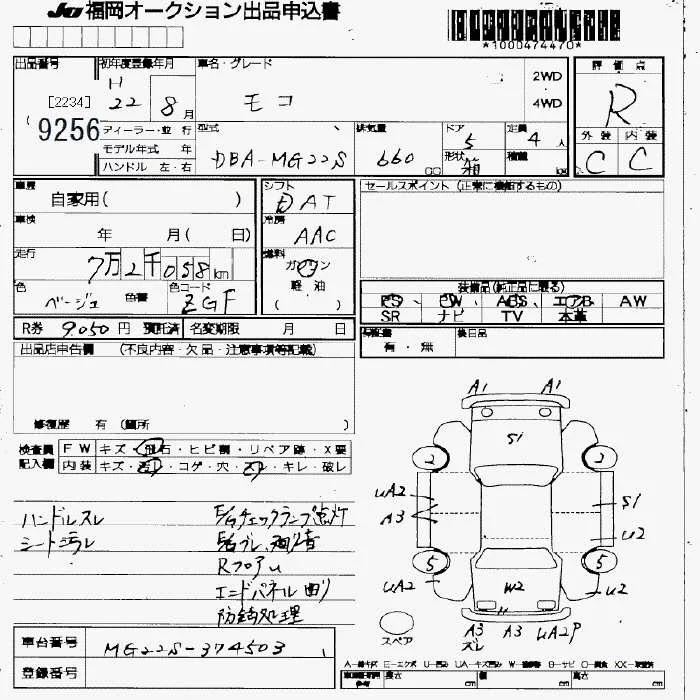 JU 福岡オークション出品申込書
*1000474470*
出品番号
[2234]
9256
初年度登録年月
H
22 8月
ディーラー・並行
モデル年式 年
ハンドル 左・右
車名・グレード
モコ
2WD
4WD
型式
DBA-MG22S
排気量
660
cc
ドア
5
形状
箱
定員
4人
積載
kg
評価点
R
外装 内装
C C
車歴
自家用( )
車検
年 月( 日)
走行
7万2千058km
色
ベージュ
色替
色コード
ZGF
シフト
DAT
冷房
AAC
燃料
ガソリン
軽油
( )
セールスポイント (正常に機能するもの)
装備品(純正品に限る)
PS、 PW、 ABS、 エアB、 AW
SR ナビ TV 本革
保証書
有・無
後日品
R券 9,050円 預託済 名変期限 月 日
出品店申告欄 (不良内容・欠品・注意事項等記載)
修復歴 有 (箇所 )
検査員
記入欄
FW キズ・飛石・ヒビ割・リペア跡・X要
内装 キズ・汚レ・コゲ・穴・スレ・キレ・破レ
ハンドルスレ
シート汚レ
E/Gチェックランプ点灯
Rフロアu
エンドパネル曲り
防錆処理
A1 A1
S1
2 2
UA2
A3
S1
U2
5 5
UA2
W2
U2
A3
スレ
A3 UA2P
スペア
車台番号 MG22S-374503
登録番号